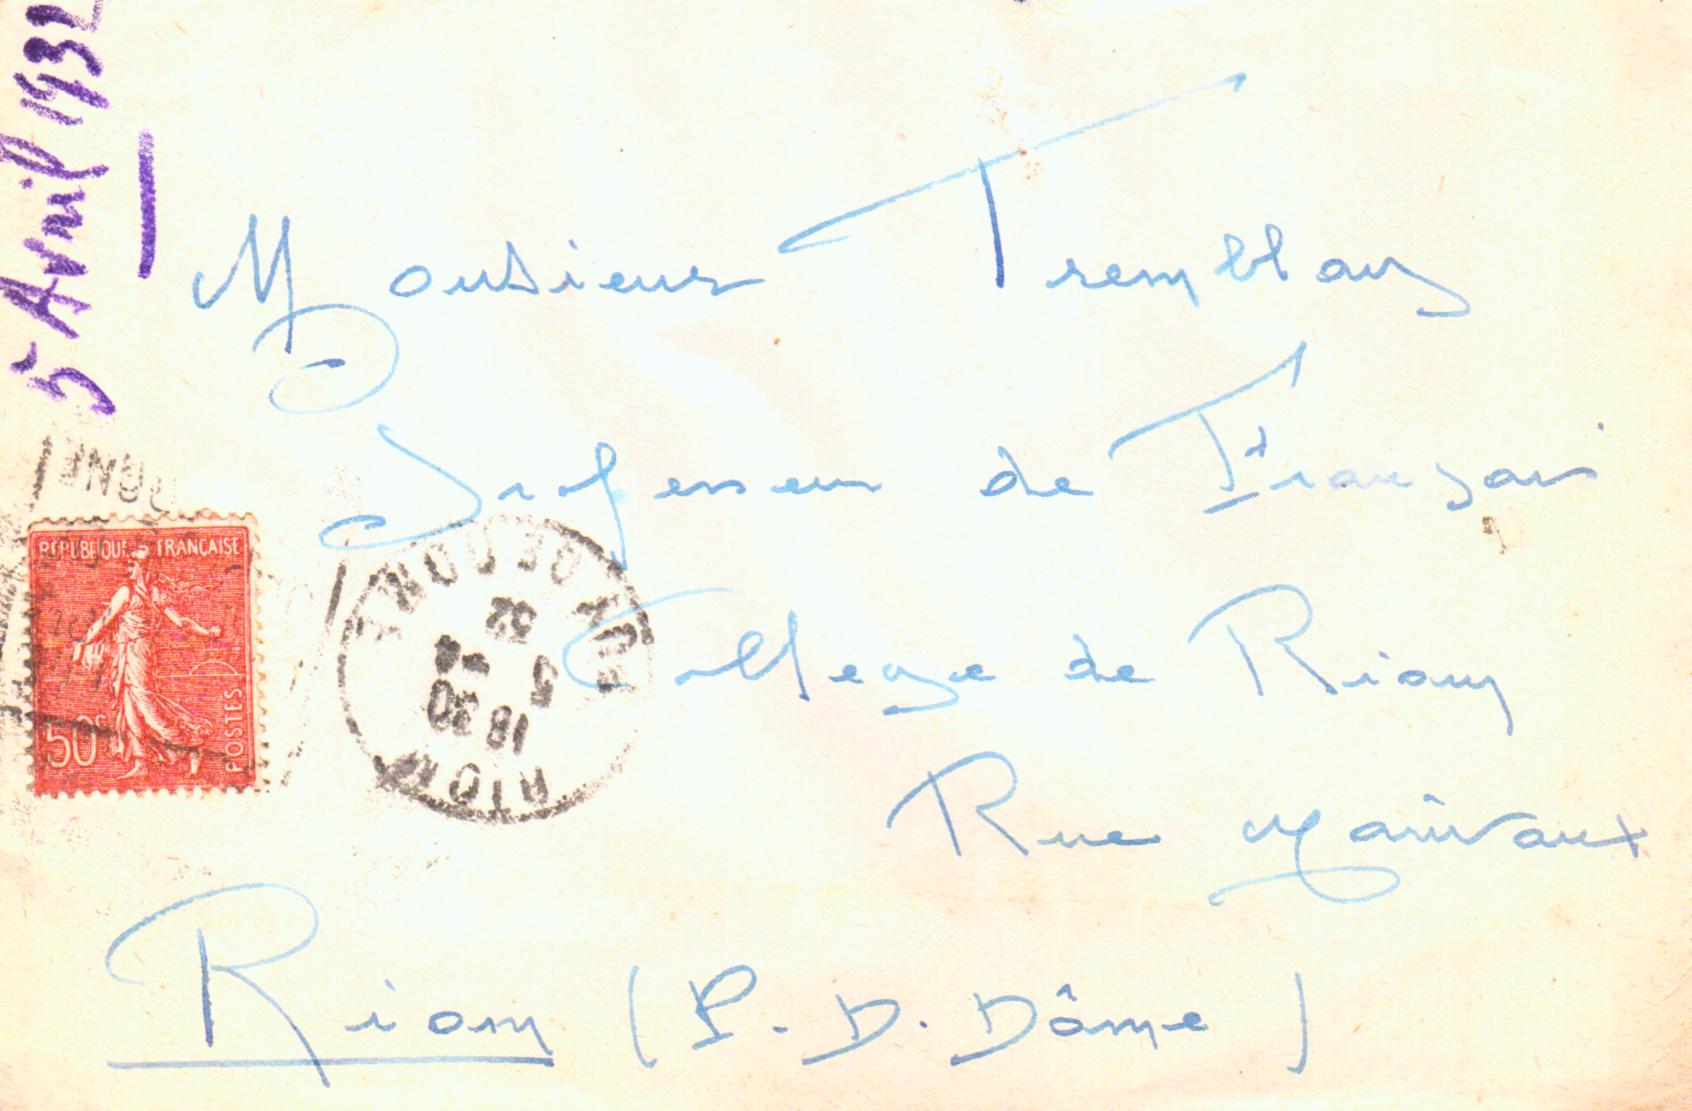 5 Avril 1932
Monsieur Tremblay
Professeur de Français
College de Riom
Rue Marivaux
Riom (P. D. Dôme)
REPUBLIQUE FRANÇAISE
50c
POSTES
RIOM
18 30
5 -4
32
PUY-DE-DOME